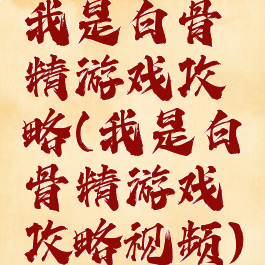 我是白骨
精游戏攻
略(我是白
骨精游戏
攻略视频)